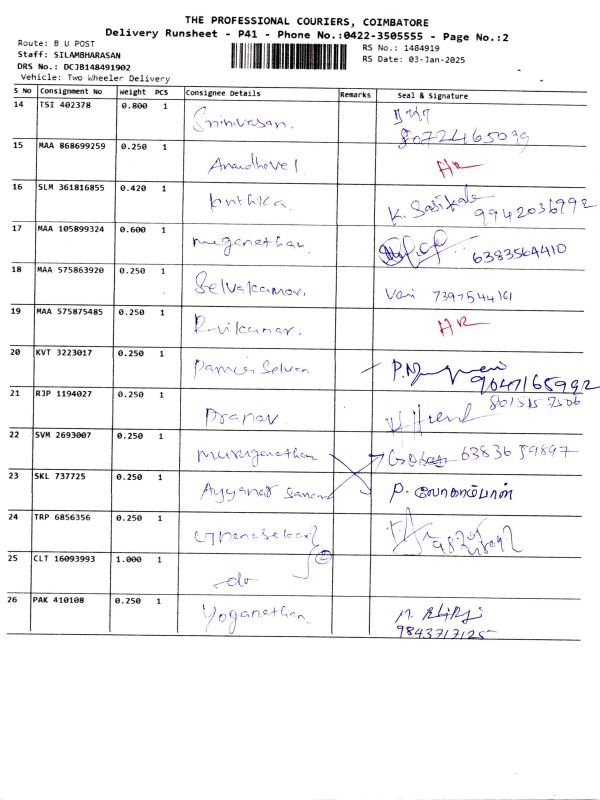 THE PROFESSIONAL COURIERS, COIMBATORE
Delivery Runsheet - P41 - Phone No.:0422-3505555 - Page No.:2
Route: B U POST
RS No.: 1484919
Staff: SILAMBHARASAN
RS Date: 03-Jan-2025
DRS No.: DCJB148491902
Vehicle: Two Wheeler Delivery
S No Consignment No Weight PCS Consignee Details Remarks Seal & Signature
14 TSI 402378 0.800 1 Srinivasan.
8072465099
15 MAA 868699259 0.250 1 Anandhavel HR
16 SLM 361816855 0.420 1 K. Sasikala 9942036992
17 MAA 105899324 0.600 1 muganathan. 6383564410
18 MAA 575863920 0.250 1 Selvakumar. Vani 7397544161
19 MAA 575875485 0.250 1 Ravikumar. HR
20 KVT 3223017 0.250 1 Selvan
9047165992
21 RJP 1194027 0.250 1 Pranav
22 SVM 2693007 0.250 1 muruganathan 63836 59897
23 SKL 737725 0.250 1 Ayyanar
24 TRP 6856356 0.250 1 Gnanasekar
25 CLT 16093993 1.000 1 do
26 PAK 410108 0.250 1 Yoganathan.
9843717125